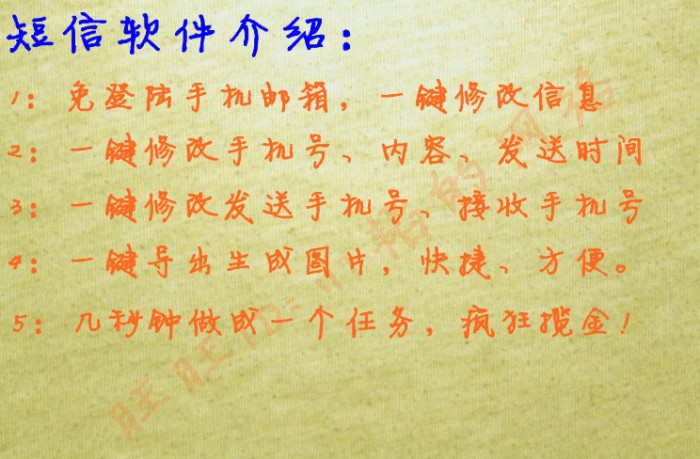 短信软件介绍：
1：免登陆手机邮箱，一键修改信息
2：一键修改手机号、内容、发送时间
3：一键修改发送手机号、接收手机号
4：一键导出生成图片，快捷、方便。
5：几秒钟做成一个任务，疯狂揽金！